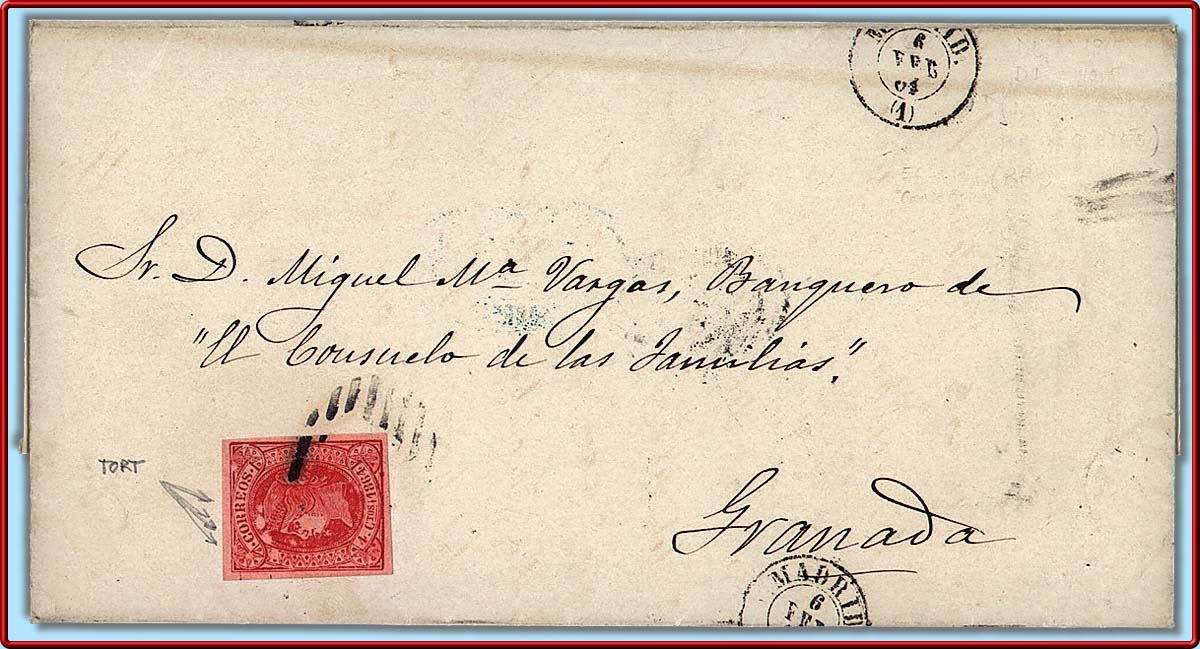 MADRID.
6
FEB
(1)
Sr. D. Miguel Mª Vargas, Banquero de
"El Consuelo de las Familias".
TORT
CORREOS
1864
4 Ctos
Granada
MADRID
6
FEB